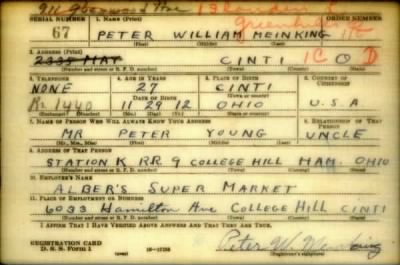 911
SERIAL NUMBER 1. NAME (Print) ORDER NUMBER
67 PETER WILLIAM MEINKING
(First) (Middle) (Last)
2. ADDRESS (Print)
2335 MAY CINTI 1C O D
(Number and street or R. F. D. number) (Town) (County) (State)
3. TELEPHONE 4. AGE IN YEARS 5. PLACE OF BIRTH 6. COUNTRY OF CITIZENSHIP
NONE 27 CINTI
DATE OF BIRTH
Ki. 1440 11 29 12 OHIO U.S.A
(Exchange) (Number) (Mo.) (Day) (Yr.) (State or country)
7. NAME OF PERSON WHO WILL ALWAYS KNOW YOUR ADDRESS 8. RELATIONSHIP OF THAT PERSON
MR PETER YOUNG UNCLE
(Mr., Mrs., Miss) (First) (Middle) (Last)
9. ADDRESS OF THAT PERSON
STATION K RR 9 COLLEGE HILL HAM. OHIO
(Number and street or R. F. D. number) (Town) (County) (State)
10. EMPLOYER'S NAME
ALBER'S SUPER MARKET
11. PLACE OF EMPLOYMENT OR BUSINESS
6033 Hamilton Ave COLLEGE HILL CINTI
(Number and street or R. F. D. number) (Town) (County) (State)
I AFFIRM THAT I HAVE VERIFIED ABOVE ANSWERS AND THAT THEY ARE TRUE.
REGISTRATION CARD
D. S. S. Form 1 16—17105 Peter W. Meinking